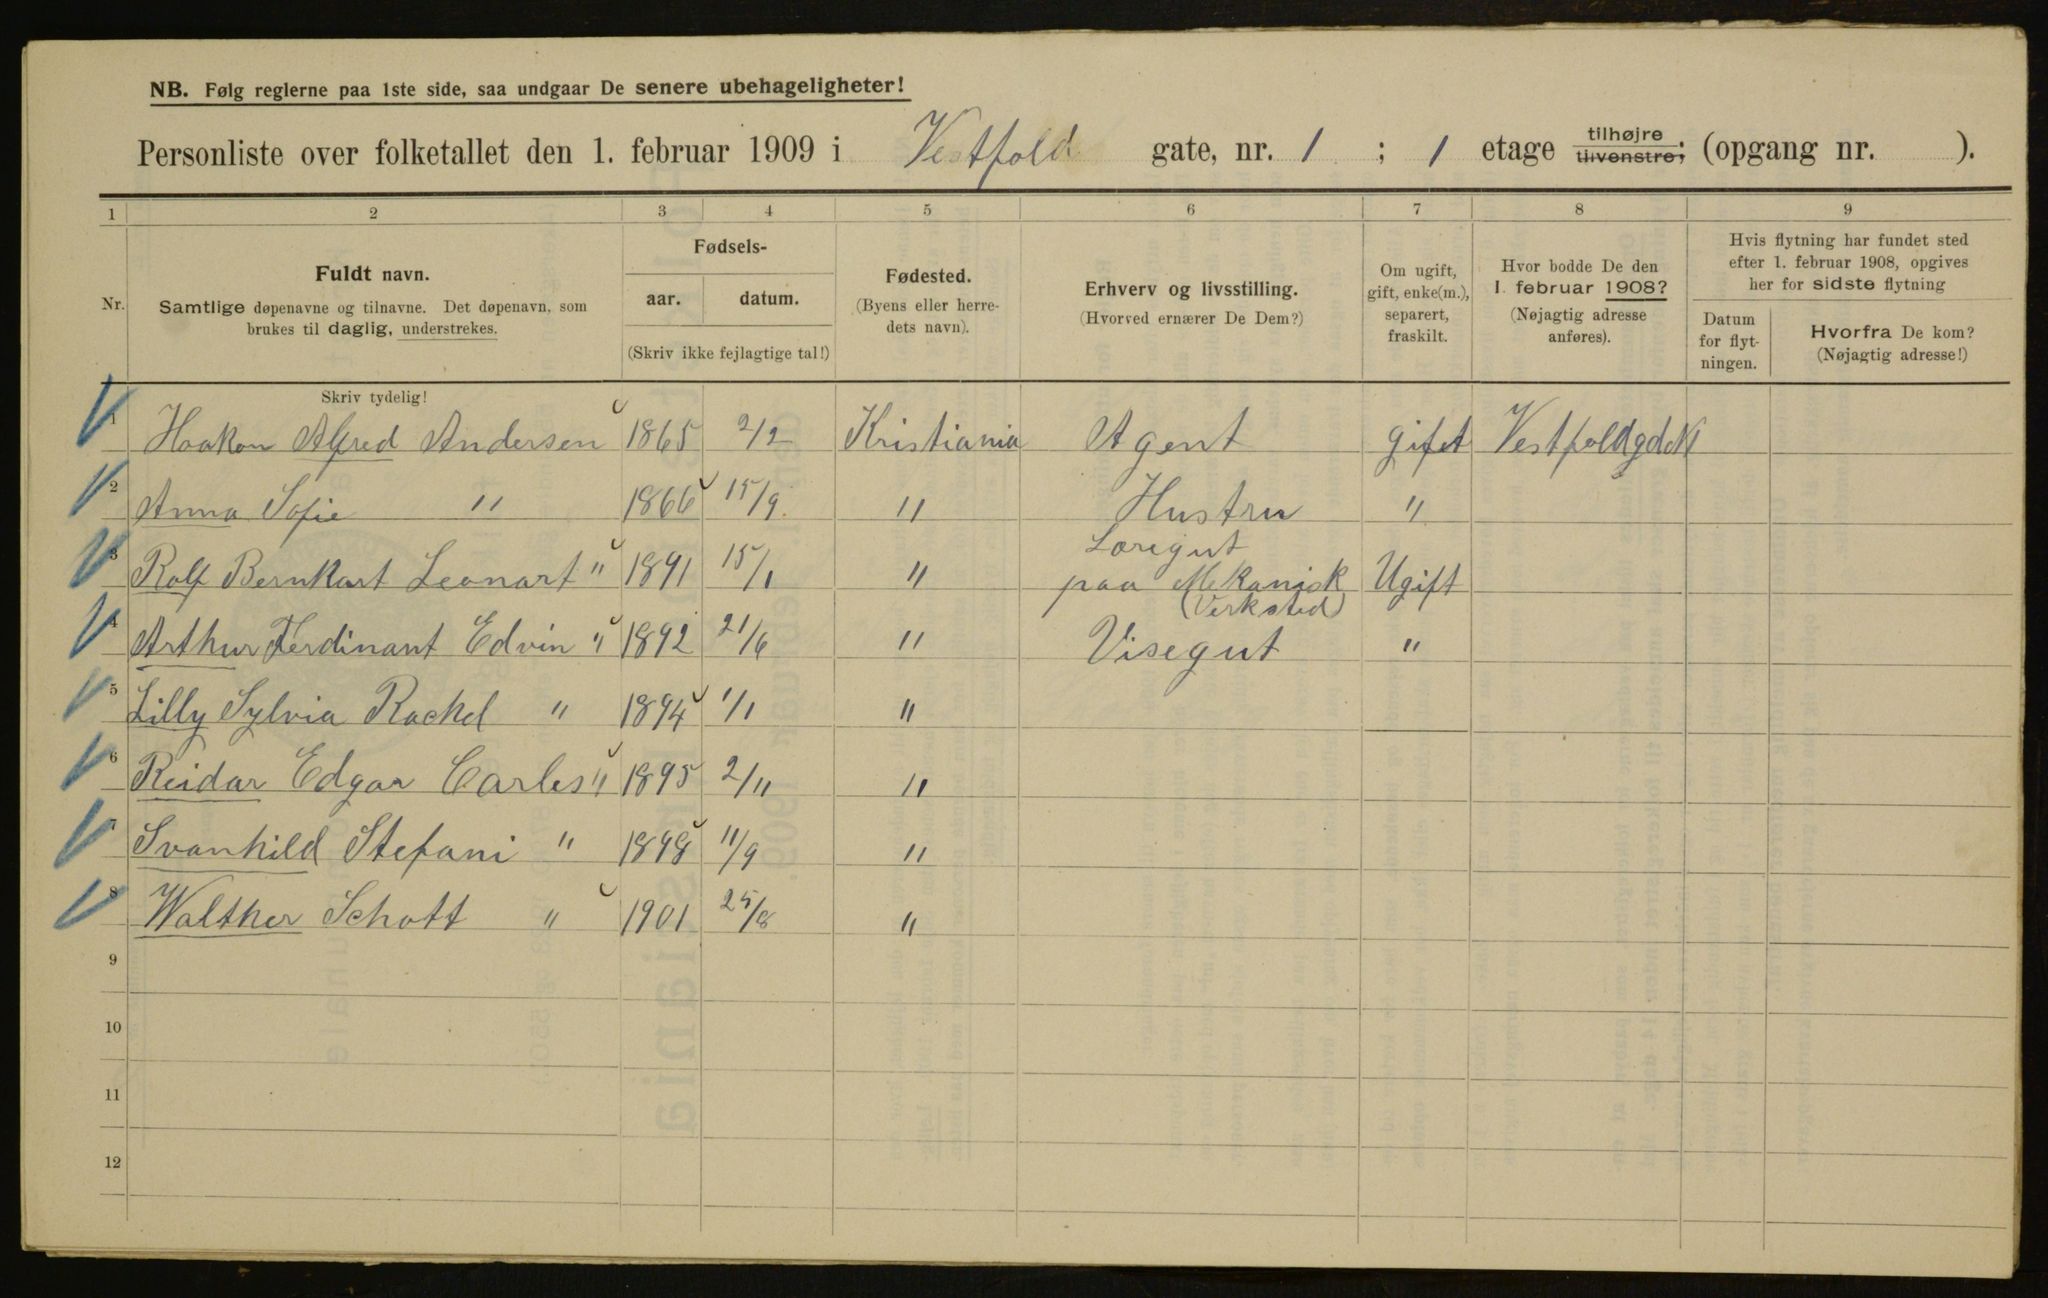 NB. Følg reglerne paa 1ste side, saa undgaar De senere ubehageligheter!
Personliste over folketallet den 1. februar 1909 i Vestfold gate, nr. 1 ; 1 etage tilhøjre tilvenstre; (opgang nr. ).
1 2 3 4 5 6 7 8 9
Nr.
Fuldt navn.
Samtlige døpenavne og tilnavne. Det døpenavn, som
brukes til daglig, understrekes.
Fødsels-
aar. datum.
(Skriv ikke fejlagtige tal!)
Fødested.
(Byens eller herre-
dets navn).
Erhverv og livsstilling.
(Hvorved ernærer De Dem?)
Om ugift,
gift, enke(m.),
separert,
fraskilt.
Hvor bodde De den
1. februar 1908?
(Nøjagtig adresse
anføres).
Hvis flytning har fundet sted
efter 1. februar 1908, opgives
her for sidste flytning
Datum
for flyt-
ningen.
Hvorfra De kom?
(Nøjagtig adresse!)
Skriv tydelig!
1 Haakon Alfred Andersen 1865 2/2 Kristiania Agent gifet
2 Anna Sofie " 1866 15/9 " Hustru "
3 Rolf Bernhart Leonart " 1891 15/1 " Læregut
paa Mekanisk Ugift
(Verksted)
4 Arthur Ferdinant Edvin " 1892 21/6 " Visegut "
5 Lilly Sylvia Rackel " 1894 1/1 "
6 Reidar Edgar Carles " 1895 2/11 "
7 Svanhild Stefani " 1898 11/9 "
8 Walther Schott " 1901 25/8 "
9
10
11
12